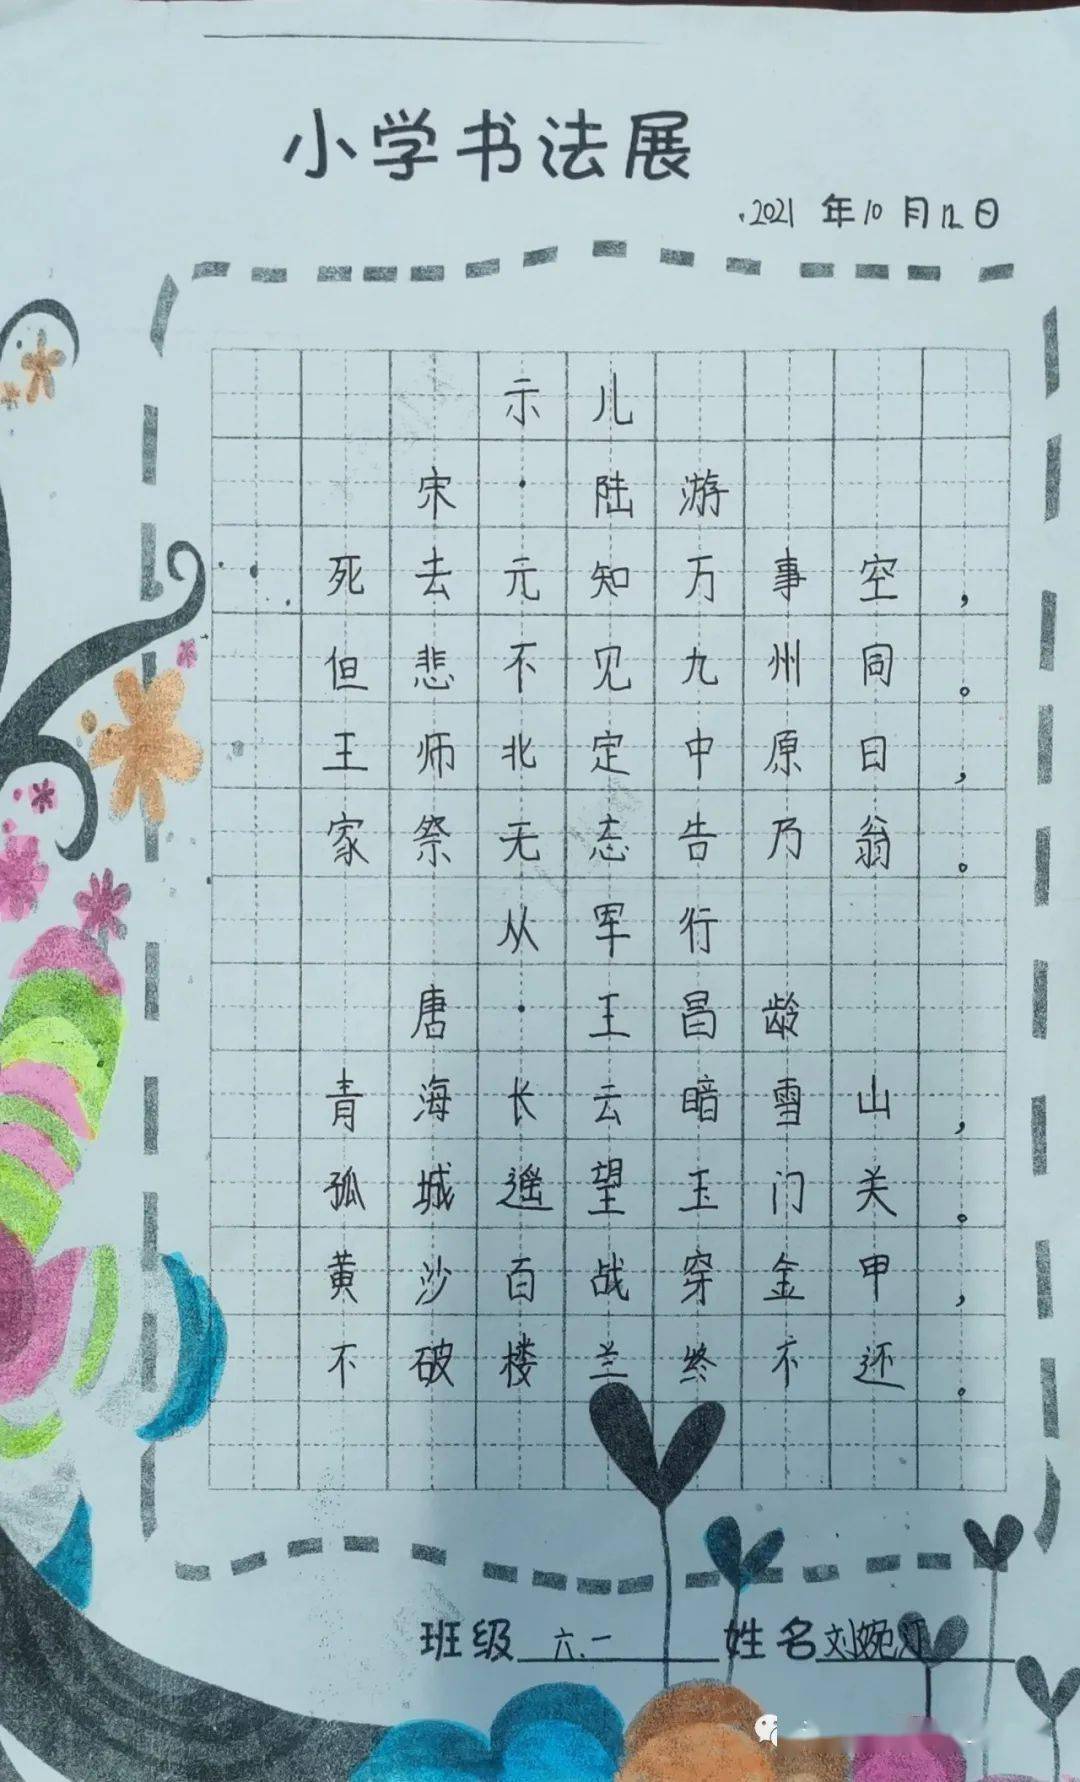 小学书法展
2021年10月12日
示儿
宋·陆游
死去元知万事空，
但悲不见九州同。
王师北定中原日，
家祭无忘告乃翁。
从军行
唐·王昌龄
青海长云暗雪山，
孤城遥望玉门关。
黄沙百战穿金甲，
不破楼兰终不还。
班级 六.一 姓名 刘婉